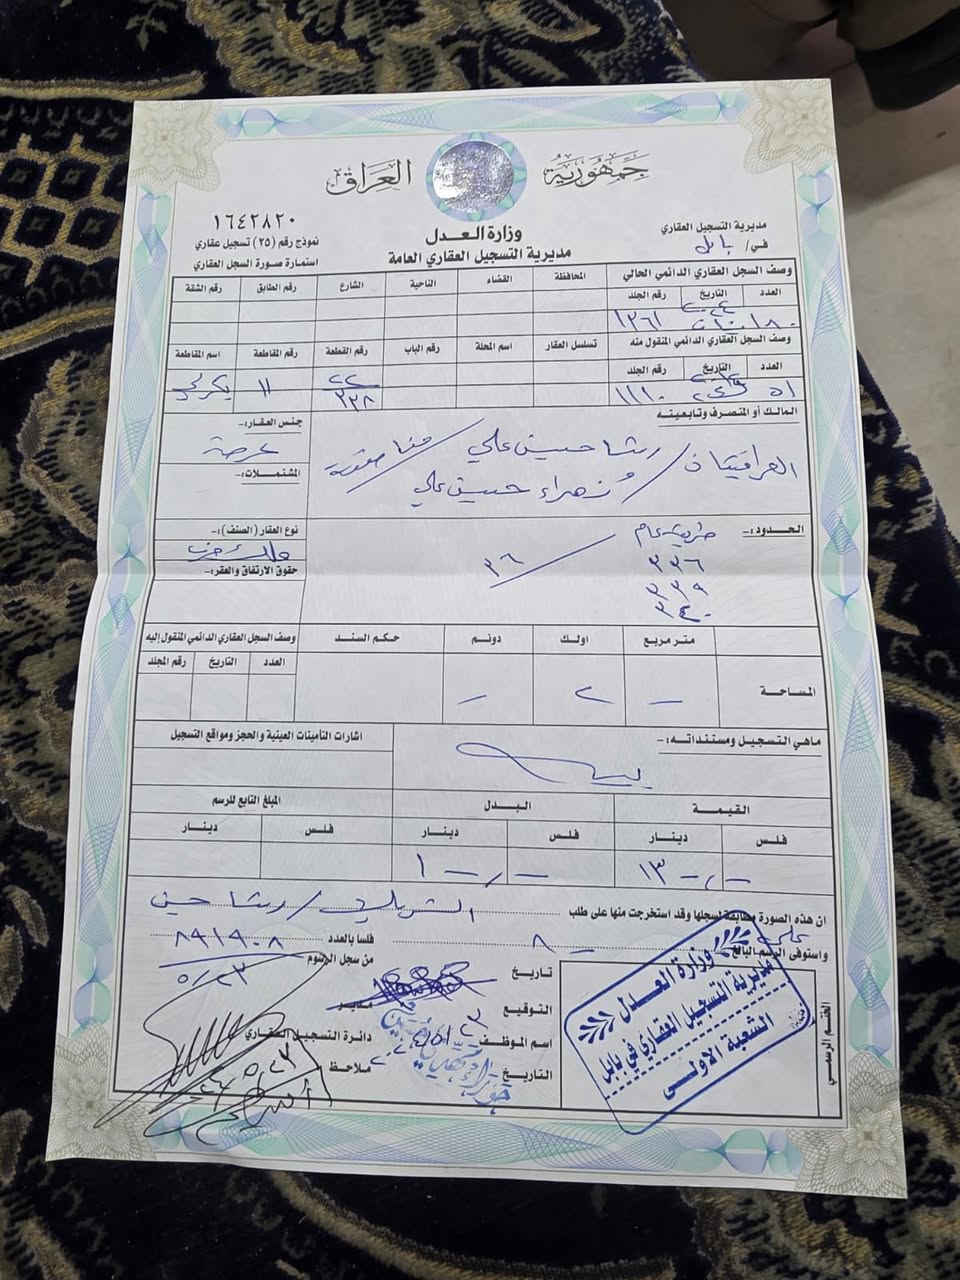 جمهورية العراق
١٦٤٢٨٢٠
نموذج رقم (٢٥) تسجيل عقاري
استمارة صورة السجل العقاري
وزارة العدل
مديرية التسجيل العقاري العامة
مديرية التسجيل العقاري
في/ بابل
وصف السجل العقاري الدائمي الحالي
المحافظة القضاء الناحية الشارع رقم الطابق رقم الشقة
العدد التاريخ رقم الجلد
١٣٦١
وصف السجل العقاري الدائمي المنقول منه
تسلسل العقار اسم المحلة رقم الباب رقم القطعة رقم المقاطعة اسم المقاطعة
العدد التاريخ رقم الجلد
٥١ ١١١٠ ٢٢ ٣٣٨ ١١ بكرلي
المالك أو المتصرف وتابعيته
العراقيتان / رشا حسين علي / مناصفة
و زهراء حسين علي
جنس العقار:-
عرصة
المشتملات:-
نوع العقار (الصنف):-
ملك صرف
حقوق الارتفاق والعقر:-
الحدود:-
طريق عام
٣٣٦
٣٣٩
٣٤٠
٣٦
متر مربع اولك دونم حكم السند
المساحة
- ٢ -
وصف السجل العقاري الدائمي المنقول اليه
العدد التاريخ رقم المجلد
ماهي التسجيل ومستنداته:-
اشارات التأمينات العينية والحجز ومواقع التسجيل
القيمة البدل المبلغ التابع للرسم
فلس دينار فلس دينار فلس دينار
ان هذه الصورة مطابقة لسجلها وقد استخرجت منها على طلب
رشا حسين
علي
واستوفى الرسم البالغ ٨ فلسا بالعدد ٨٩١٩٠٨
من سجل الرسوم ٥/٢٣
تاريخ
التوقيع
مدير
اسم الموظف
دائرة التسجيل العقاري
التاريخ
ملاحظ
الختم الرسمي
وزارة العدل
مديرية التسجيل العقاري في بابل
الشعبة الاولى